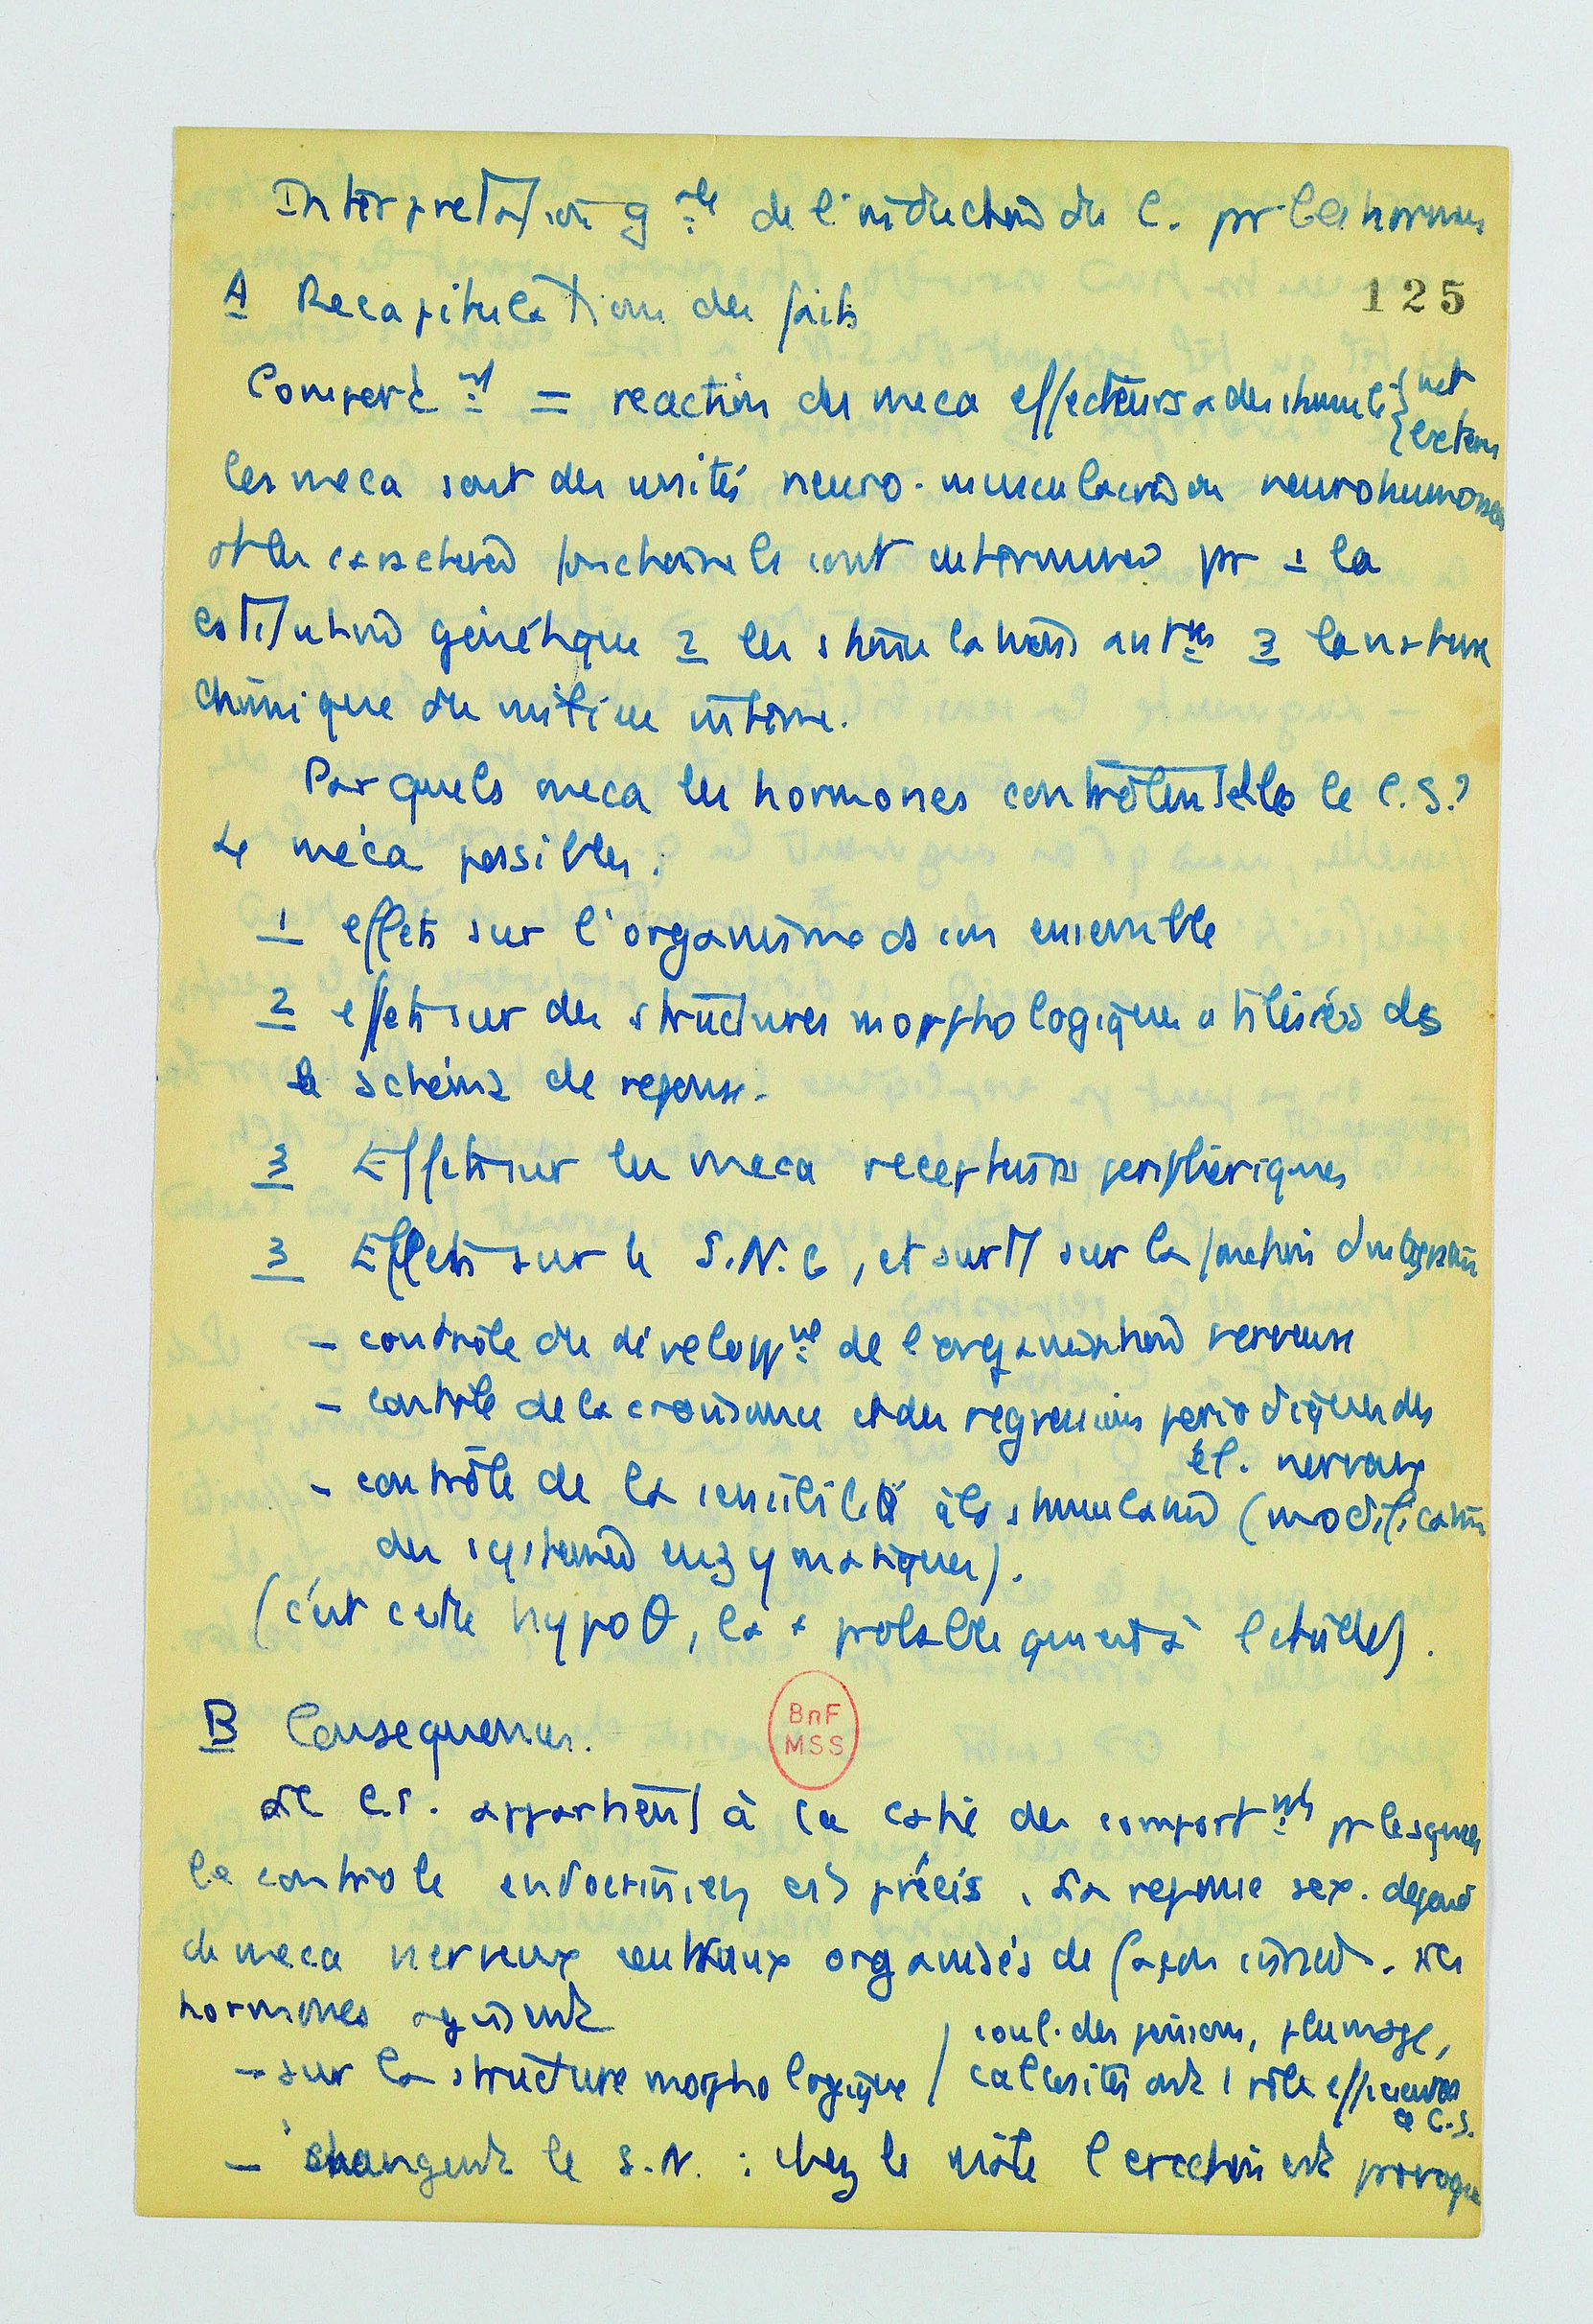 Interpretation gale de l'induction du C. pr les hormones
125
A Recapitulation des faits
Comport.nt = reaction des meca effecteurs a des stimuli { int
{ extern
les meca sont des unités neuro-musculaires ou neurohumorales
et les caractères fonctionnels sont determinés pr 1 la
cstitution génétique 2 les stimulations antres 3 la nature
chimique du milieu interne.
Par quels meca les hormones contrôlent elles le C.S.?
4 méca possibles :
1 effets sur l'organisme ds son ensemble
2 effets sur des structures morphologiques utilisées ds
le schéma de reponse.
3 Effets sur les meca recepteurs peripheriques
3 Effets sur le S.N.C, et surt sur la fonction d'integration
- contrôle du développnt de l'organisation nerveuse
- contrôle de la croissance et des regressions periodiques des
él. nerveux
- contrôle de la sensibilité à la stimulation (modification
des systemes enzymatiques).
(c'est cette hypoθ, la + probable quant à l'étude).
B Consequences.
Le C.S. appartient à la catie des comportnts pr lesquels
le contrôle endocrinien est précis. La reponse sex. depend
de meca nerveux centraux organisés de façon innée. Les
hormones agissent
- sur la structure morphologique / coul. des poissons, plumage,
callosités ont 1 rôle efficient
ds C.S.
- changent le S.N. : chez le mâle l'erection est provoque
BnF
MSS